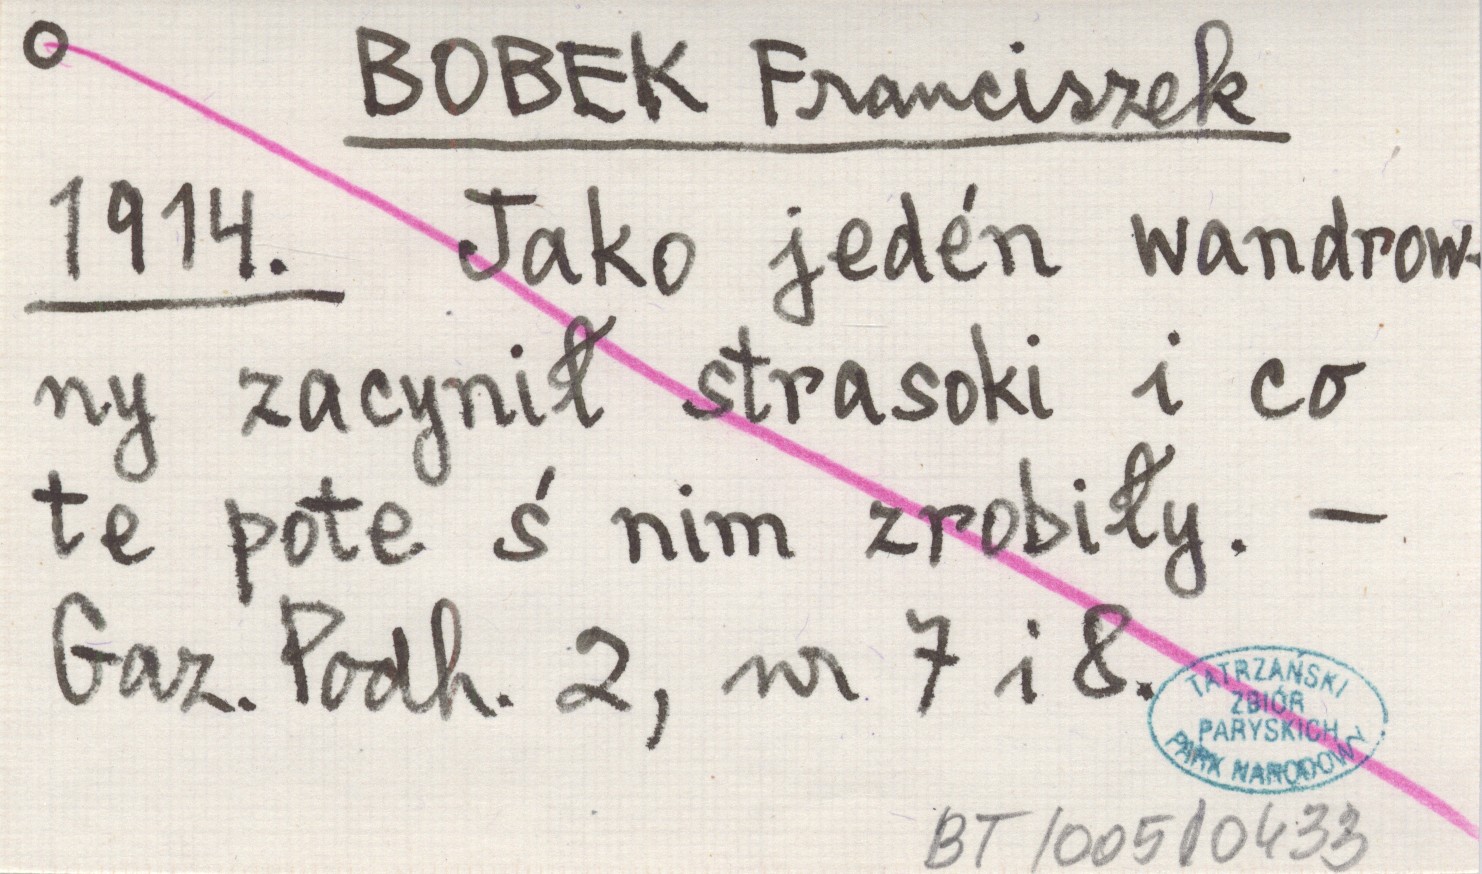 O BOBEK Franciszek
1914. Jako jedén wandrow-
ny zacynił strasoki i co
te pote ś nim zrobiły. —
Gaz. Podh. 2, nr 7 i 8.
TATRZAŃSKI
ZBIÓR
PARYSKICH
PARK NARODOWY
BT/005/0433